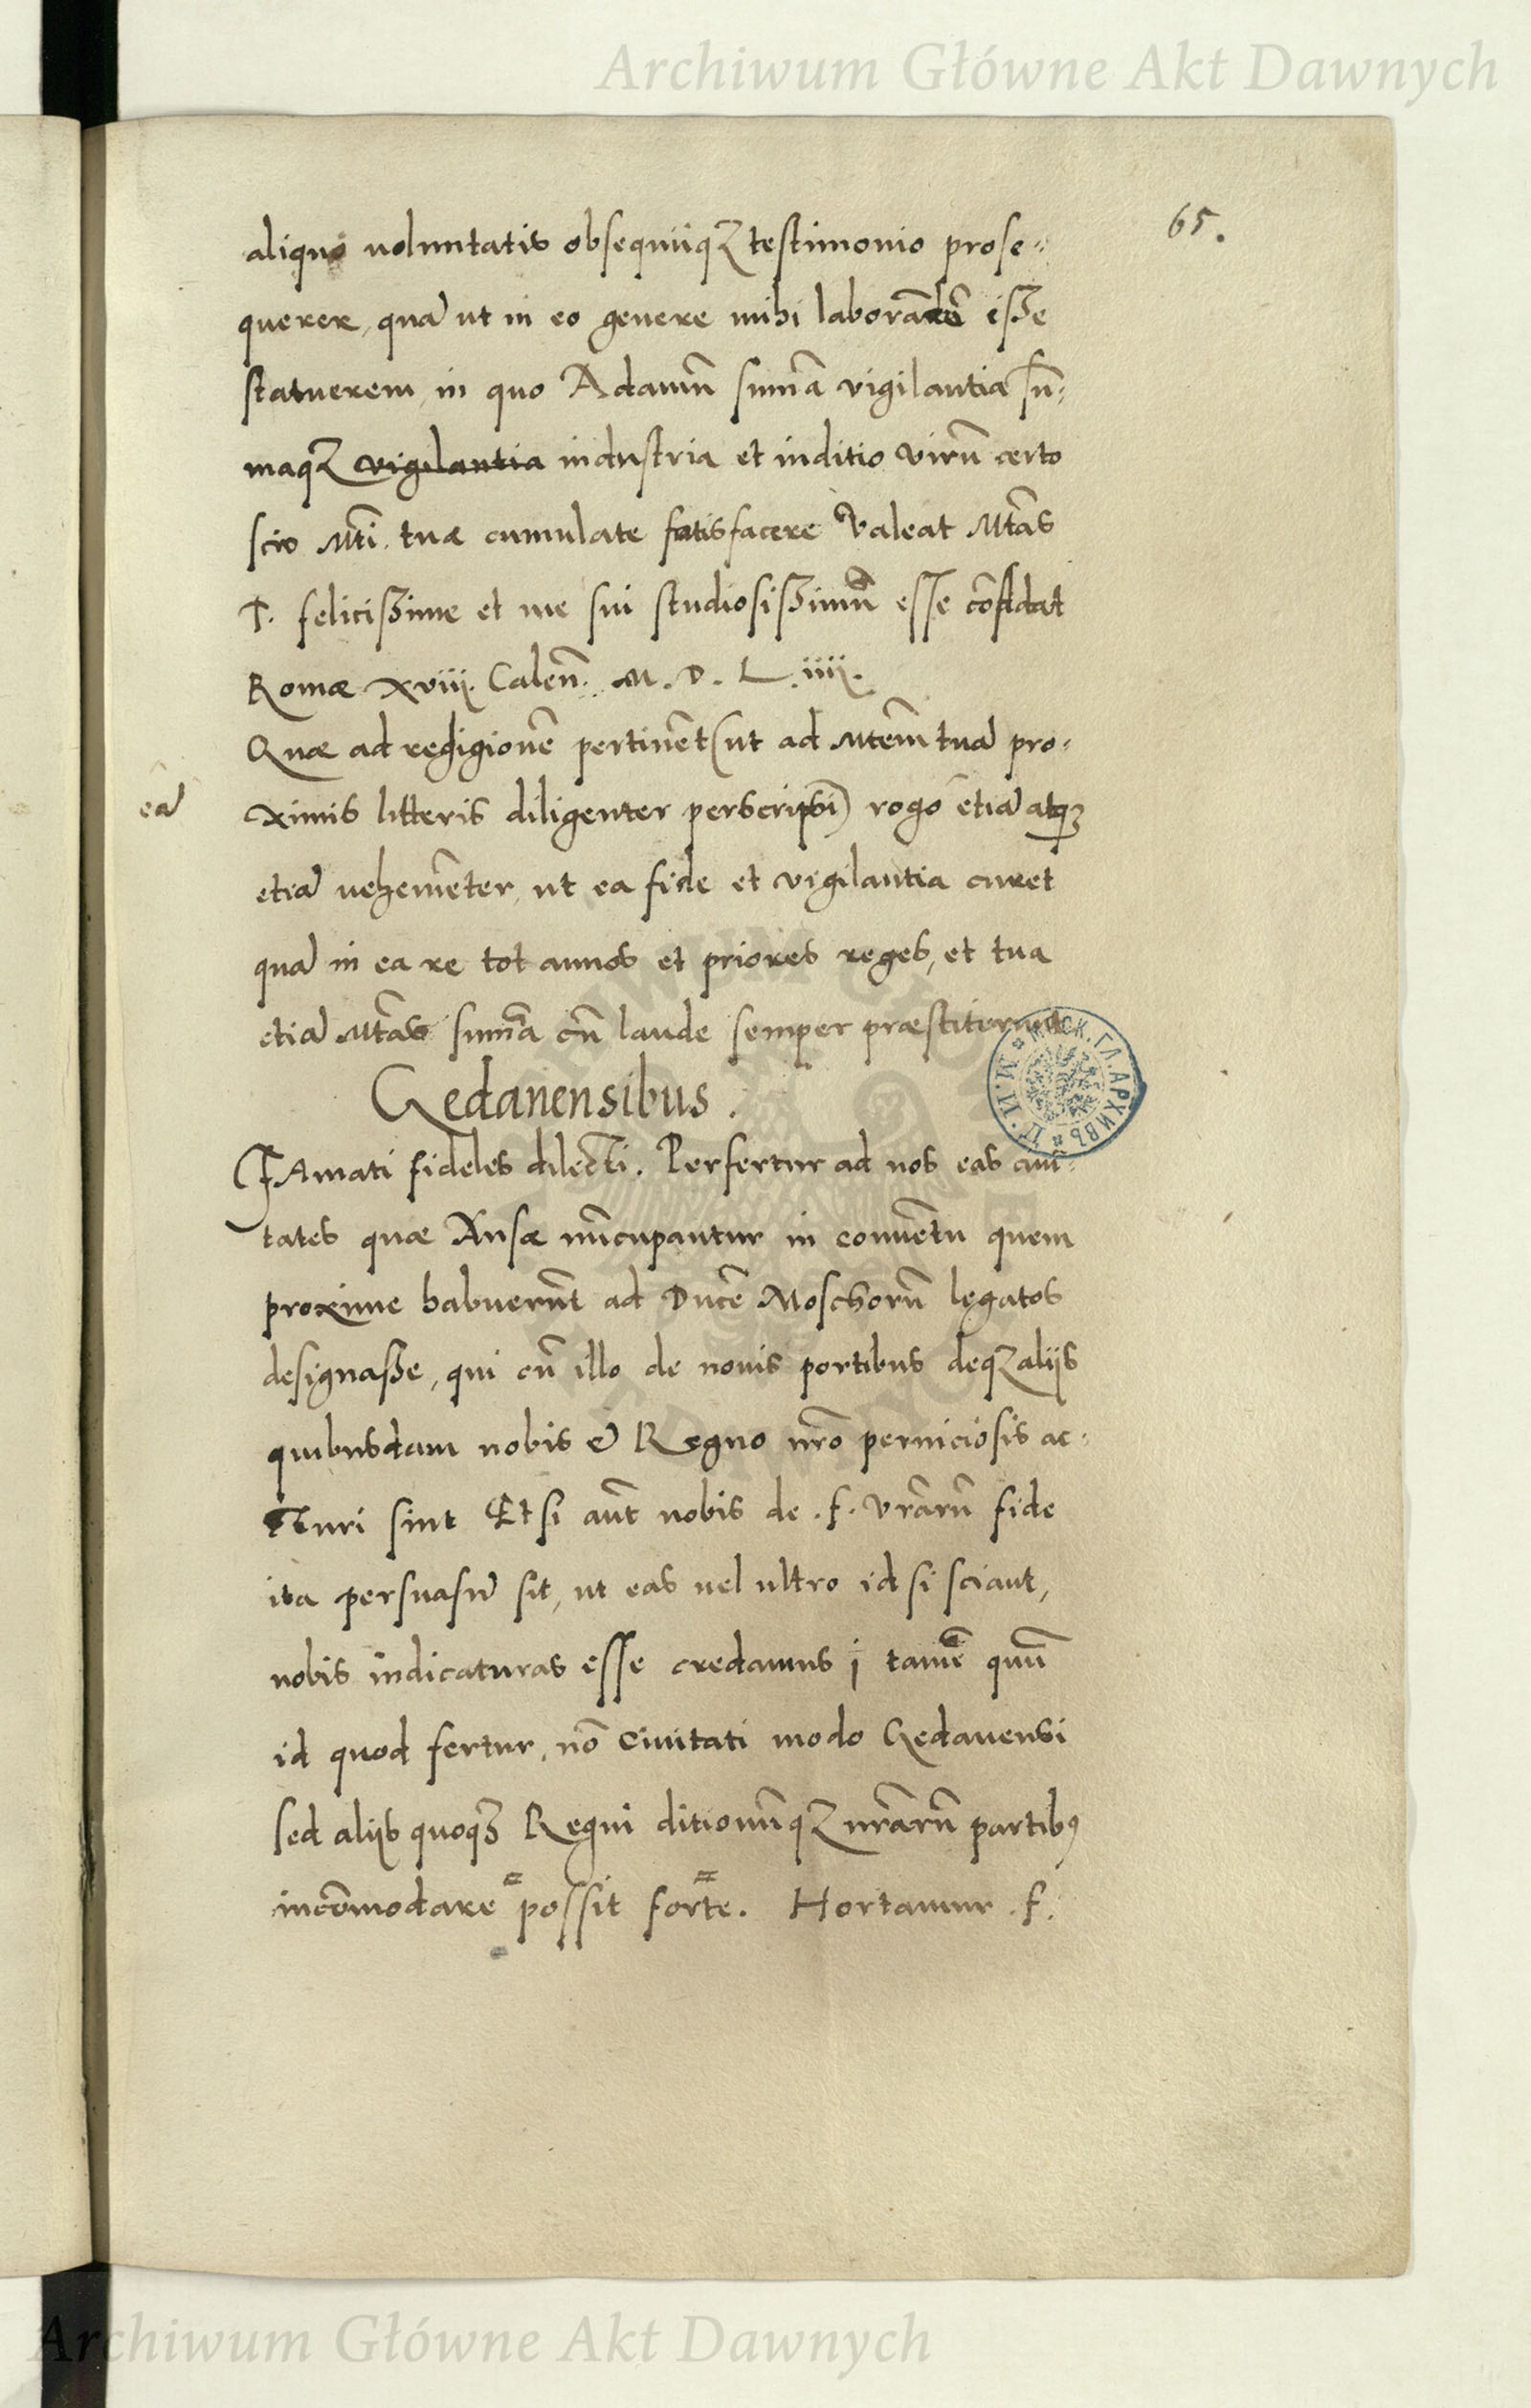 Archiwum Główne Akt Dawnych
65.
aliquo uoluntatis obsequiiqꝫ testimonio prose=
querer, quā ut in eo genere mihi laborādū esse
statuerem, in quo Adamū sum̄a vigilantia sū=
maqꝫ vigilantia industria et inditio virū certo
scio Mti. tuæ cumulate satisfacere Valeat Mtās
T. felicissime et me sui studiosissimū esse cōfidat
Romæ xviij. Calen̄. M. D. L. iiij.
Quæ ad religionē pertinēt (ut ad Mtem̄ tuā pro=
eā
ximis litteris diligenter perscripsi) rogo etiā atqꝫ
etiā uehemēter, ut ea fide et vigilantia curet
quā in ea re tot annos et priores reges, et tua
etiā Mtās sum̄a cū laude semper præstiterunt
Gedanensibus.
Famati fideles dilecti. Perfertur ad nos eas ciui=
tates quæ Ansæ nūcupantur in conuētu quem
proxime habuerūt ad Ducē Moschorū legatos
designasse, qui cū illo de nouis portibus deqꝫ alijs
quibusdam nobis & Regno nrō perniciosis ac=
turi sint Etsi aūt nobis de .f. vrārū fide
ita persuasū sit, ut eas uel ultro id si sciant,
nobis indicaturas esse credamus; tamē quū
id quod fertur, nō Ciuitati modo Gedanensi
sed alijs quoqꝫ Regni ditionūqꝫ nrārū partibꝰ
incōmodare possit forte. Hortamur .f.
МОСК. ГЛ. АРХИВЪ
М.И.Д.
Archiwum Główne Akt Dawnych